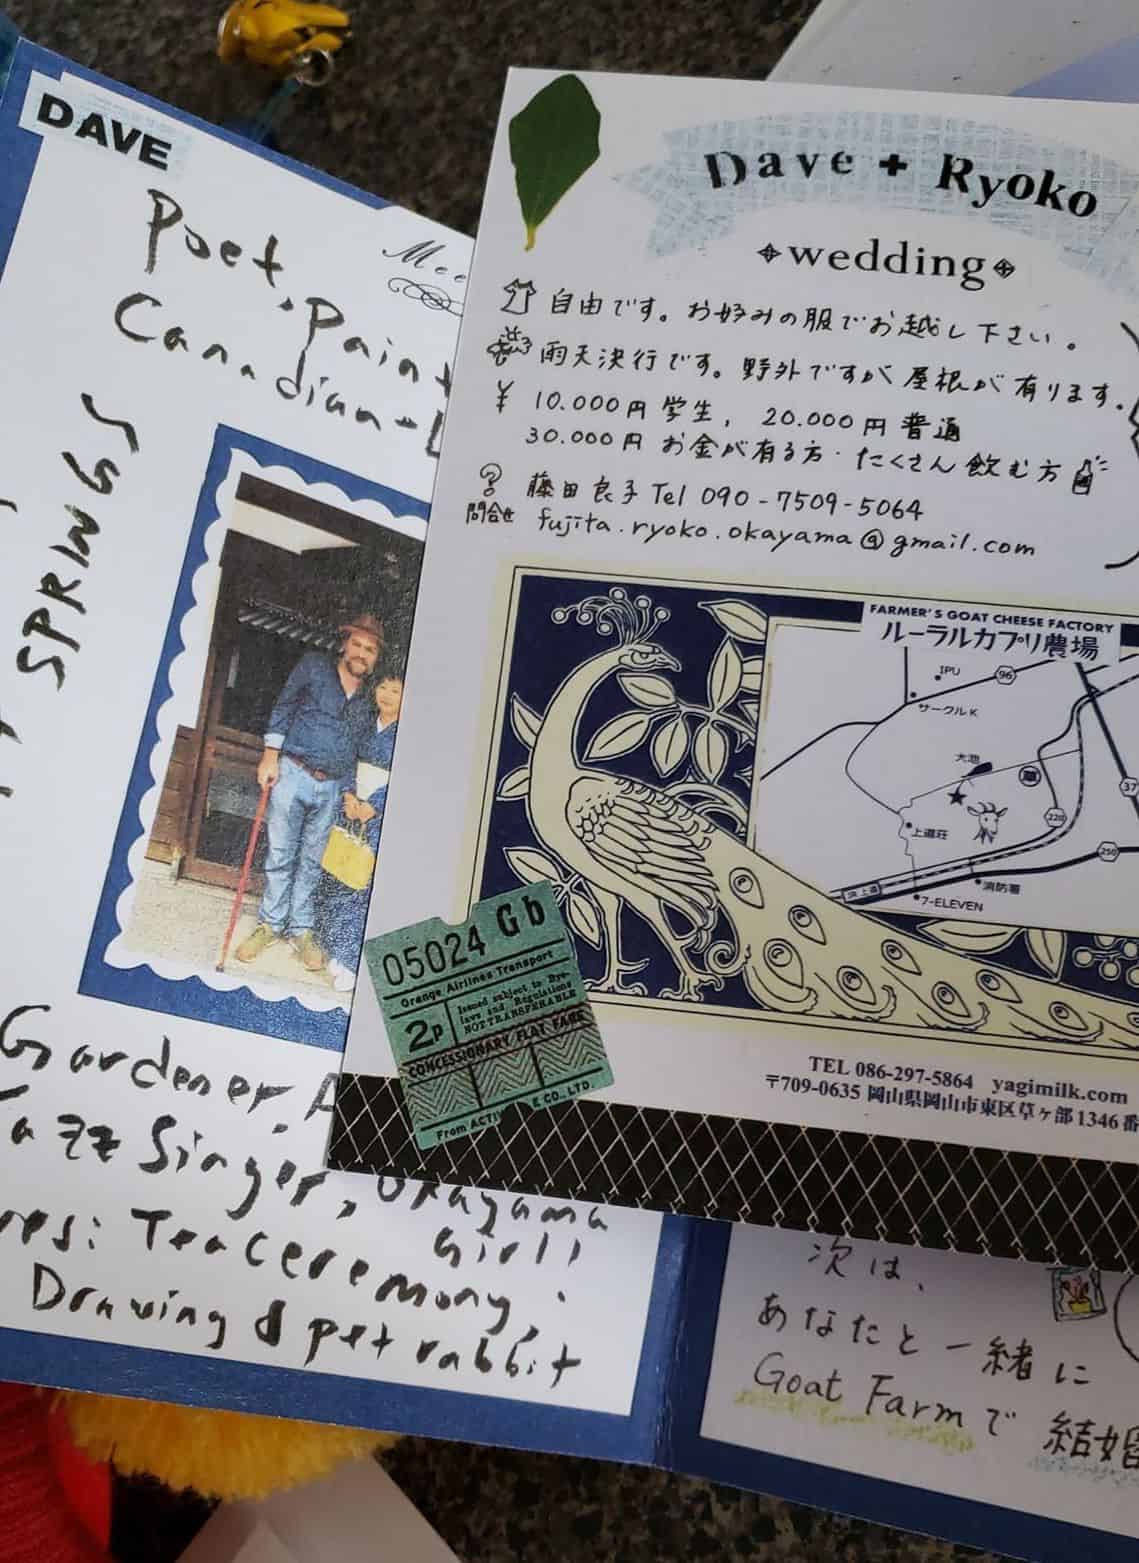 DAVE
Mee
Poet. Paint
Canadian-
SPRINGS
Gardener.
Jazz Singer, Okayama
Girl!
Tea Ceremony,
Drawing & pet rabbit
Dave + Ryoko
wedding
自由です。お好みの服でお越し下さい。
雨天決行です。野外ですが屋根が有ります。
¥ 10.000円 学生, 20.000円 普通
30.000円 お金が有る方・たくさん飲む方
問合せ
藤田良子 Tel 090-7509-5064
fujita.ryoko.okayama@gmail.com
FARMER'S GOAT CHEESE FACTORY
ルーラルカプリ農場
IPU
96
サークルK
大池
37
上道荘
220
250
JR上道
消防署
7-ELEVEN
05024 Gb
Grange Airlines Transport
2p
Issued subject to Bye-
laws and Regulations
NOT TRANSFERABLE
CONCESSIONARY FLAT FARE
From ACTI E CO., LTD.
TEL 086-297-5864 yagimilk.com
〒709-0635 岡山県岡山市東区草ヶ部1346番
次は、
あなたと一緒に
Goat Farmで結婚